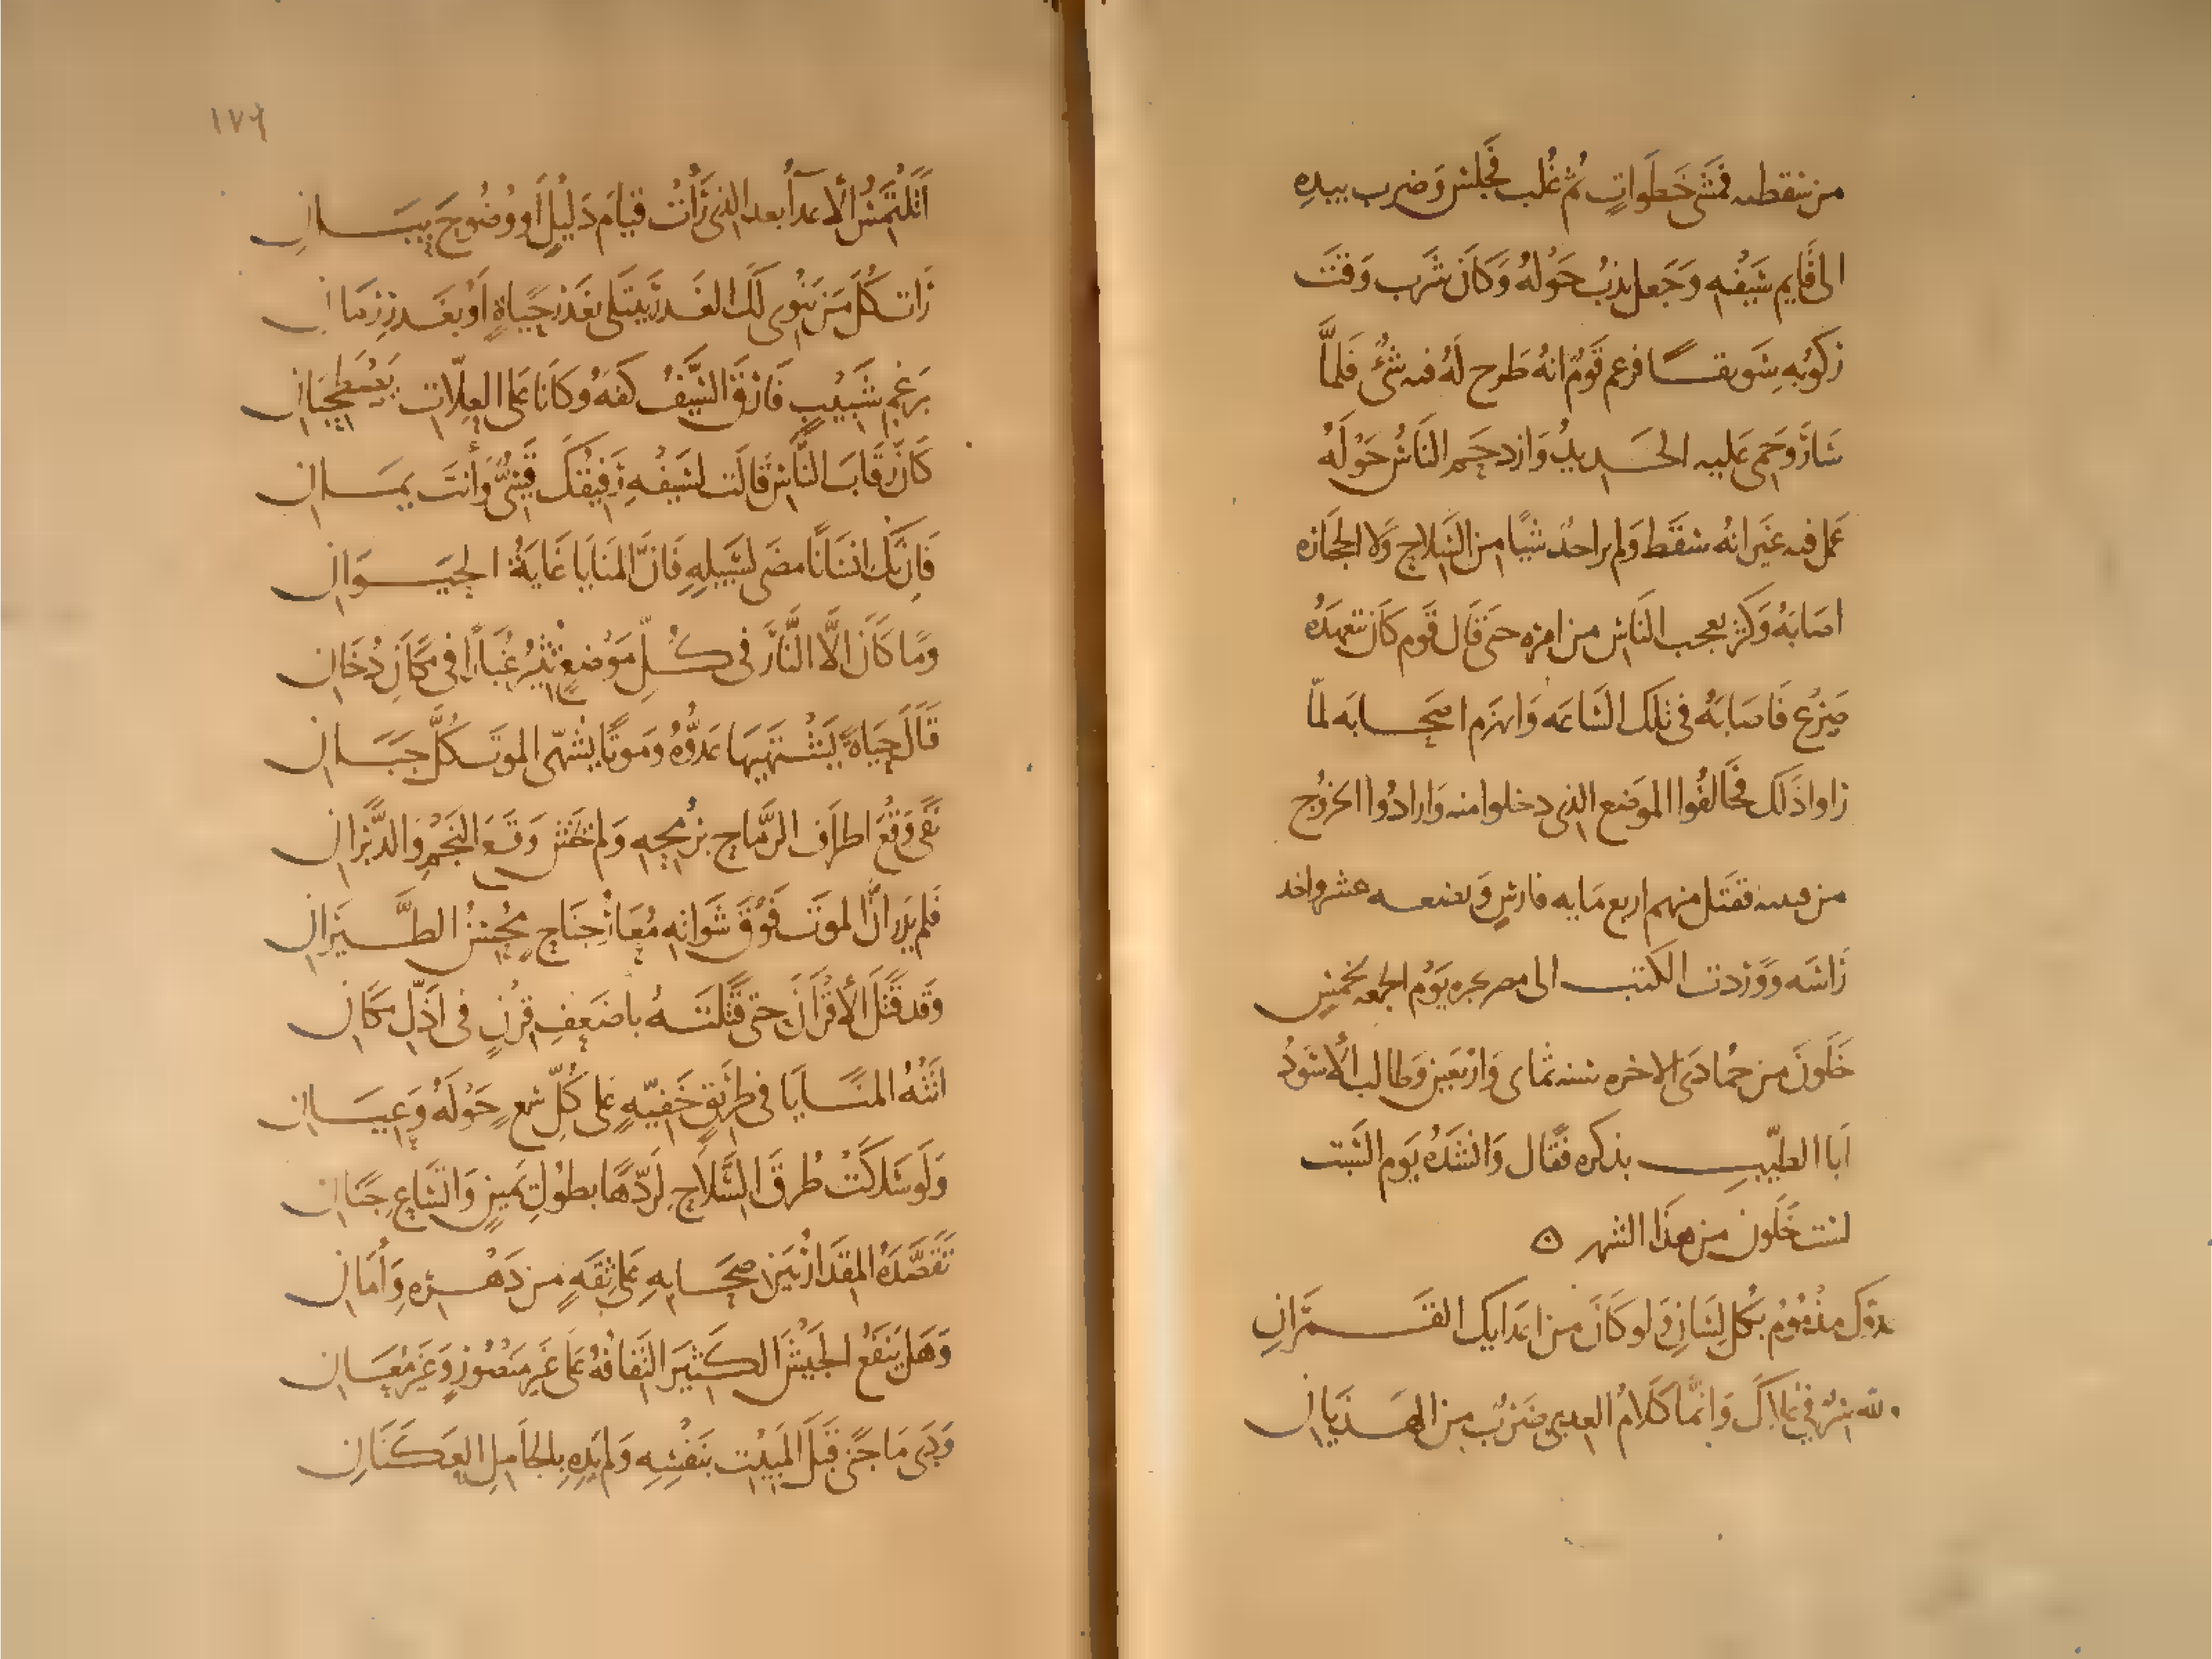 من سقطته فمشى خطوات ثم غلب فجلس وضرب بيده
الى قايم سيفه وجعل يذب حوله وكان شرب وقت
ركوبه سويقا فزعم قوم انه طرح له فيه شئ فلما
سار وحمى عليه الحديد وازدحم الناس حوله
عمل فيه غير انه سقط ولم ير احد شيا من السلاح ولا الحجاره
اصابه وكثر تعجب الناس من امره حتى قال قوم كان يتعهده
صرع فاصابه في تلك الساعه وانهزم اصحابه لما
راوا ذلك فخالفوا الموضع الذي دخلوا منه وارادوا الخروج
من فقتل منهم اربع مايه فارس وبضعه عشر واخذ
راسه ووردت الكتب الى مصر بخبره يوم الجمعه لخمس
خلون من جمادى الاخره سنه ثمان واربعين وطالب الأسود
ابا الطيّب بذكره فقال وانشده يوم السبت
لست خلون من هذا الشهر ۞
عدوّك مذمُومٌ بكل لِسَانِ وَلو كان من اعدايك القمرانِ
ولله سِرٌّ في علاكَ وانّما كلامُ العدى ضَربٌ من الهذيانِ
١٧٦
أتلتمسُ الأعداُ بعد الذي رَأتْ قيامَ دَليلٍ أو وُضُوحَ بيَانِ
رَات كلَّ مَن يَنْوى لكَ الغدرَ يبتلى بغدرِ حَياةٍ أو بغدرِ زمانِ
برغمِ شبيبٍ فارقَ السَّيفُ كفهُ وكانا على العِلّاتِ يصطحبانِ
كأنّ رقابَ الناسِ قالت لسيفهِ رفيقكَ قيسيٌّ وأنتَ يمانِ
فإن يكُ انسانًا مضى لسبيلِهِ فانَّ المنايا غايةُ الحيوانِ
ومَا كانَ الّا النّارَ في كلِّ موضعٍ تثيرُ غُبَارًا في مكانِ دُخانِ
فنالَ حياةً يشتهيها عدوُّهُ وموتًا يُشهّى الموتَ كلَّ جبَانِ
نفى وقعَ اطرافِ الرّماحِ برُمحِهِ ولم يخشَ وقعَ النجمِ والدَّبرانِ
فلم يدرِ انَّ الموتَ فَوْقَ شَوَاتِهِ مُعَارُ جناحٍ مُحسنُ الطَّيَرانِ
وقد قتلَ الأقرانَ حتى قتلتَهُ باضعفِ قِرنٍ في اذلِّ مكانِ
أتتهُ المنايا في طريقٍ خفيّهٍ على كُلِّ سمعٍ حَوْلَهُ وعِيانِ
ولو سلكتْ طُرقَ السّلاحِ لردّها بطولِ يمينٍ واتساعِ جنانِ
تقصّدهُ المقدارُ بينَ صحابهِ على ثقهٍ من دهْرهِ وأمانِ
وهل ينفعُ الجيشُ الكثيرُ التفافهُ على غيرِ منصُورٍ وغيرِ مُعانِ
ودى ما جنى قبلَ المبيتِ بنفْسِهِ ولم يَدِهِ بالجاملِ العكنانِ